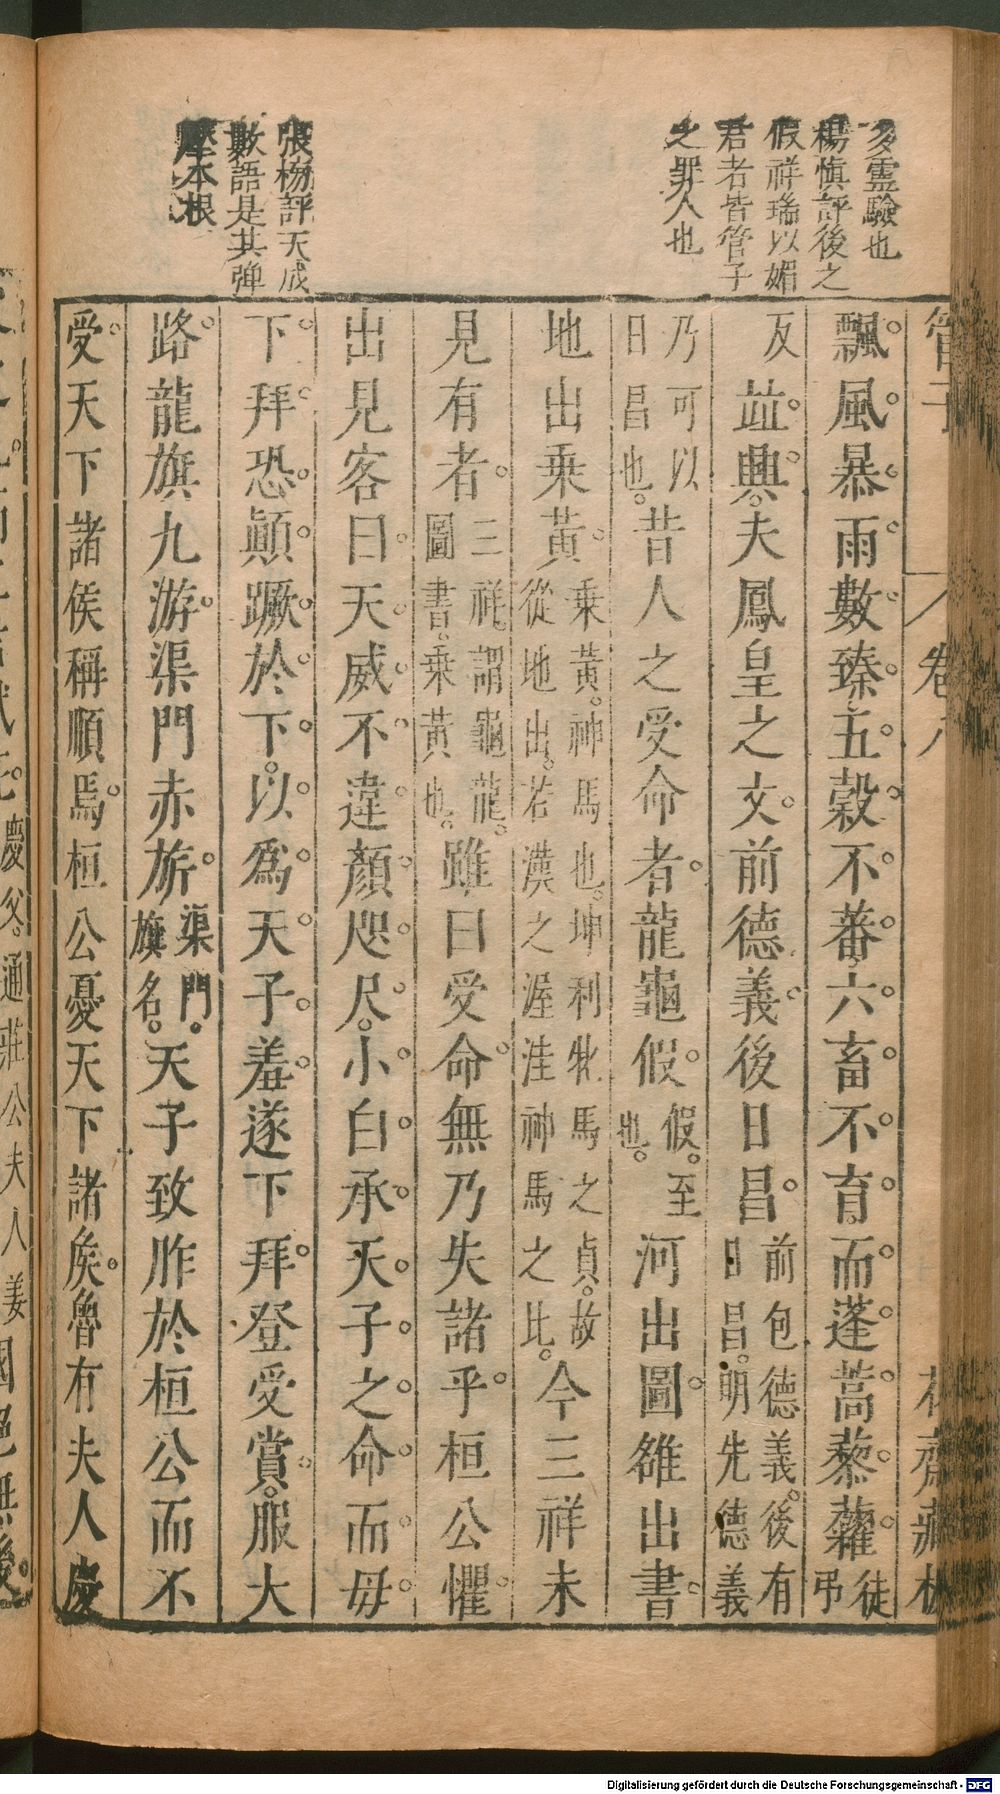 多靈驗也
楊慎評後之
假祥瑞以媚
君者皆管子
之罪人也
張楊評天威
數語是其彈
壓本根
管子
卷八
花齋藏板
飄風暴雨數臻五穀不蕃六畜不育而蓬蒿藜藋徒弔
反並興夫鳳皇之文前德義後日昌前包德義後有日昌明先德義
乃可以日昌也昔人之受命者龍龜假假至也河出圖雒出書
地出乘黃乘黃神馬也坤利牝馬之貞故從地出若漢之渥洼神馬之比今三祥未
見有者三祥謂龜龍圖書乘黃也雖曰受命無乃失諸乎桓公懼
出見客曰天威不違顏咫尺小白承天子之命而毋
下拜恐顛蹶於下以爲天子羞遂下拜登受賞服大
路龍旗九游渠門赤旂渠門旗名天子致胙於桓公而不
受天下諸侯稱順焉桓公憂天下諸侯魯有夫人慶
慶父通莊公夫人姜國絕無後
Digitalisierung gefördert durch die Deutsche Forschungsgemeinschaft - DFG